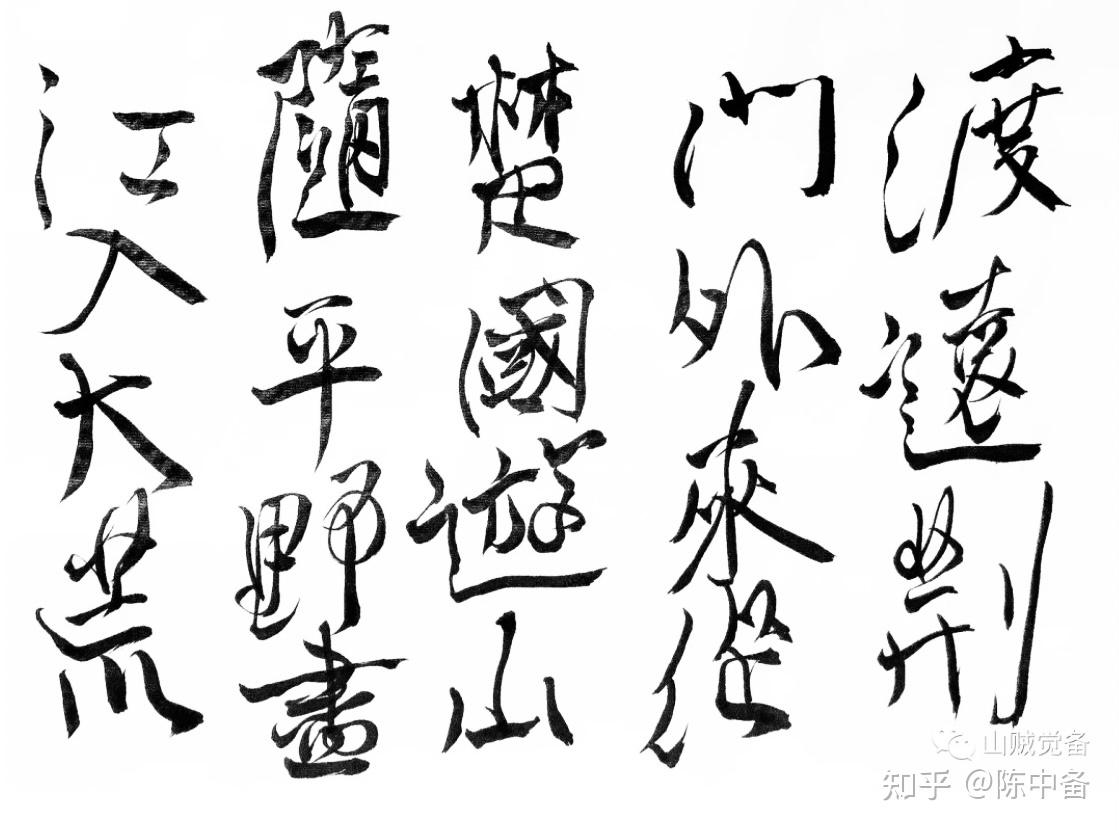 渡遠荆
門外來從
楚國遊山
隨平野盡
江入大荒
山贼觉备
知乎 @陈中备